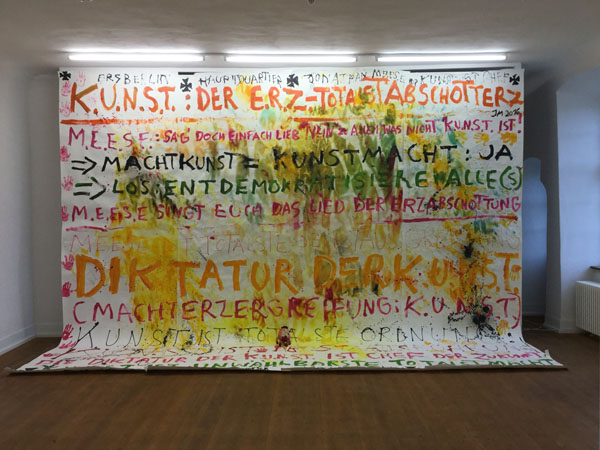 ARSBERLIN HAUPTQUARTIER JONATHAN MEESE
K.U.N.S.T.: DER ERZ-TOTALSTABSCHOTTERZ
JM 2016
M.E.E.S.E.: SAG DOCH EINFACH LIEB NEIN WAS NICHT K.U.N.S.T. IST!
=> MACHTKUNST = KUNSTMACHT: JA
=> LOS: ENTDEMOKRATISIERE ALLE(S)
M.E.E.S.E SINGT EUCH DAS LIED DER ERZABSCHOTTUNG
DIKTATUR DER K.U.N.S.T.
(MACHTERZERGREIFUNG: K.U.N.S.T)
K.U.N.S.T. IST TOTALSTE ORDNUNG
DIKTATUR DER KUNST IST CHEF DER ZUKUNFT
IST UNWÄHLBARSTE MACHT